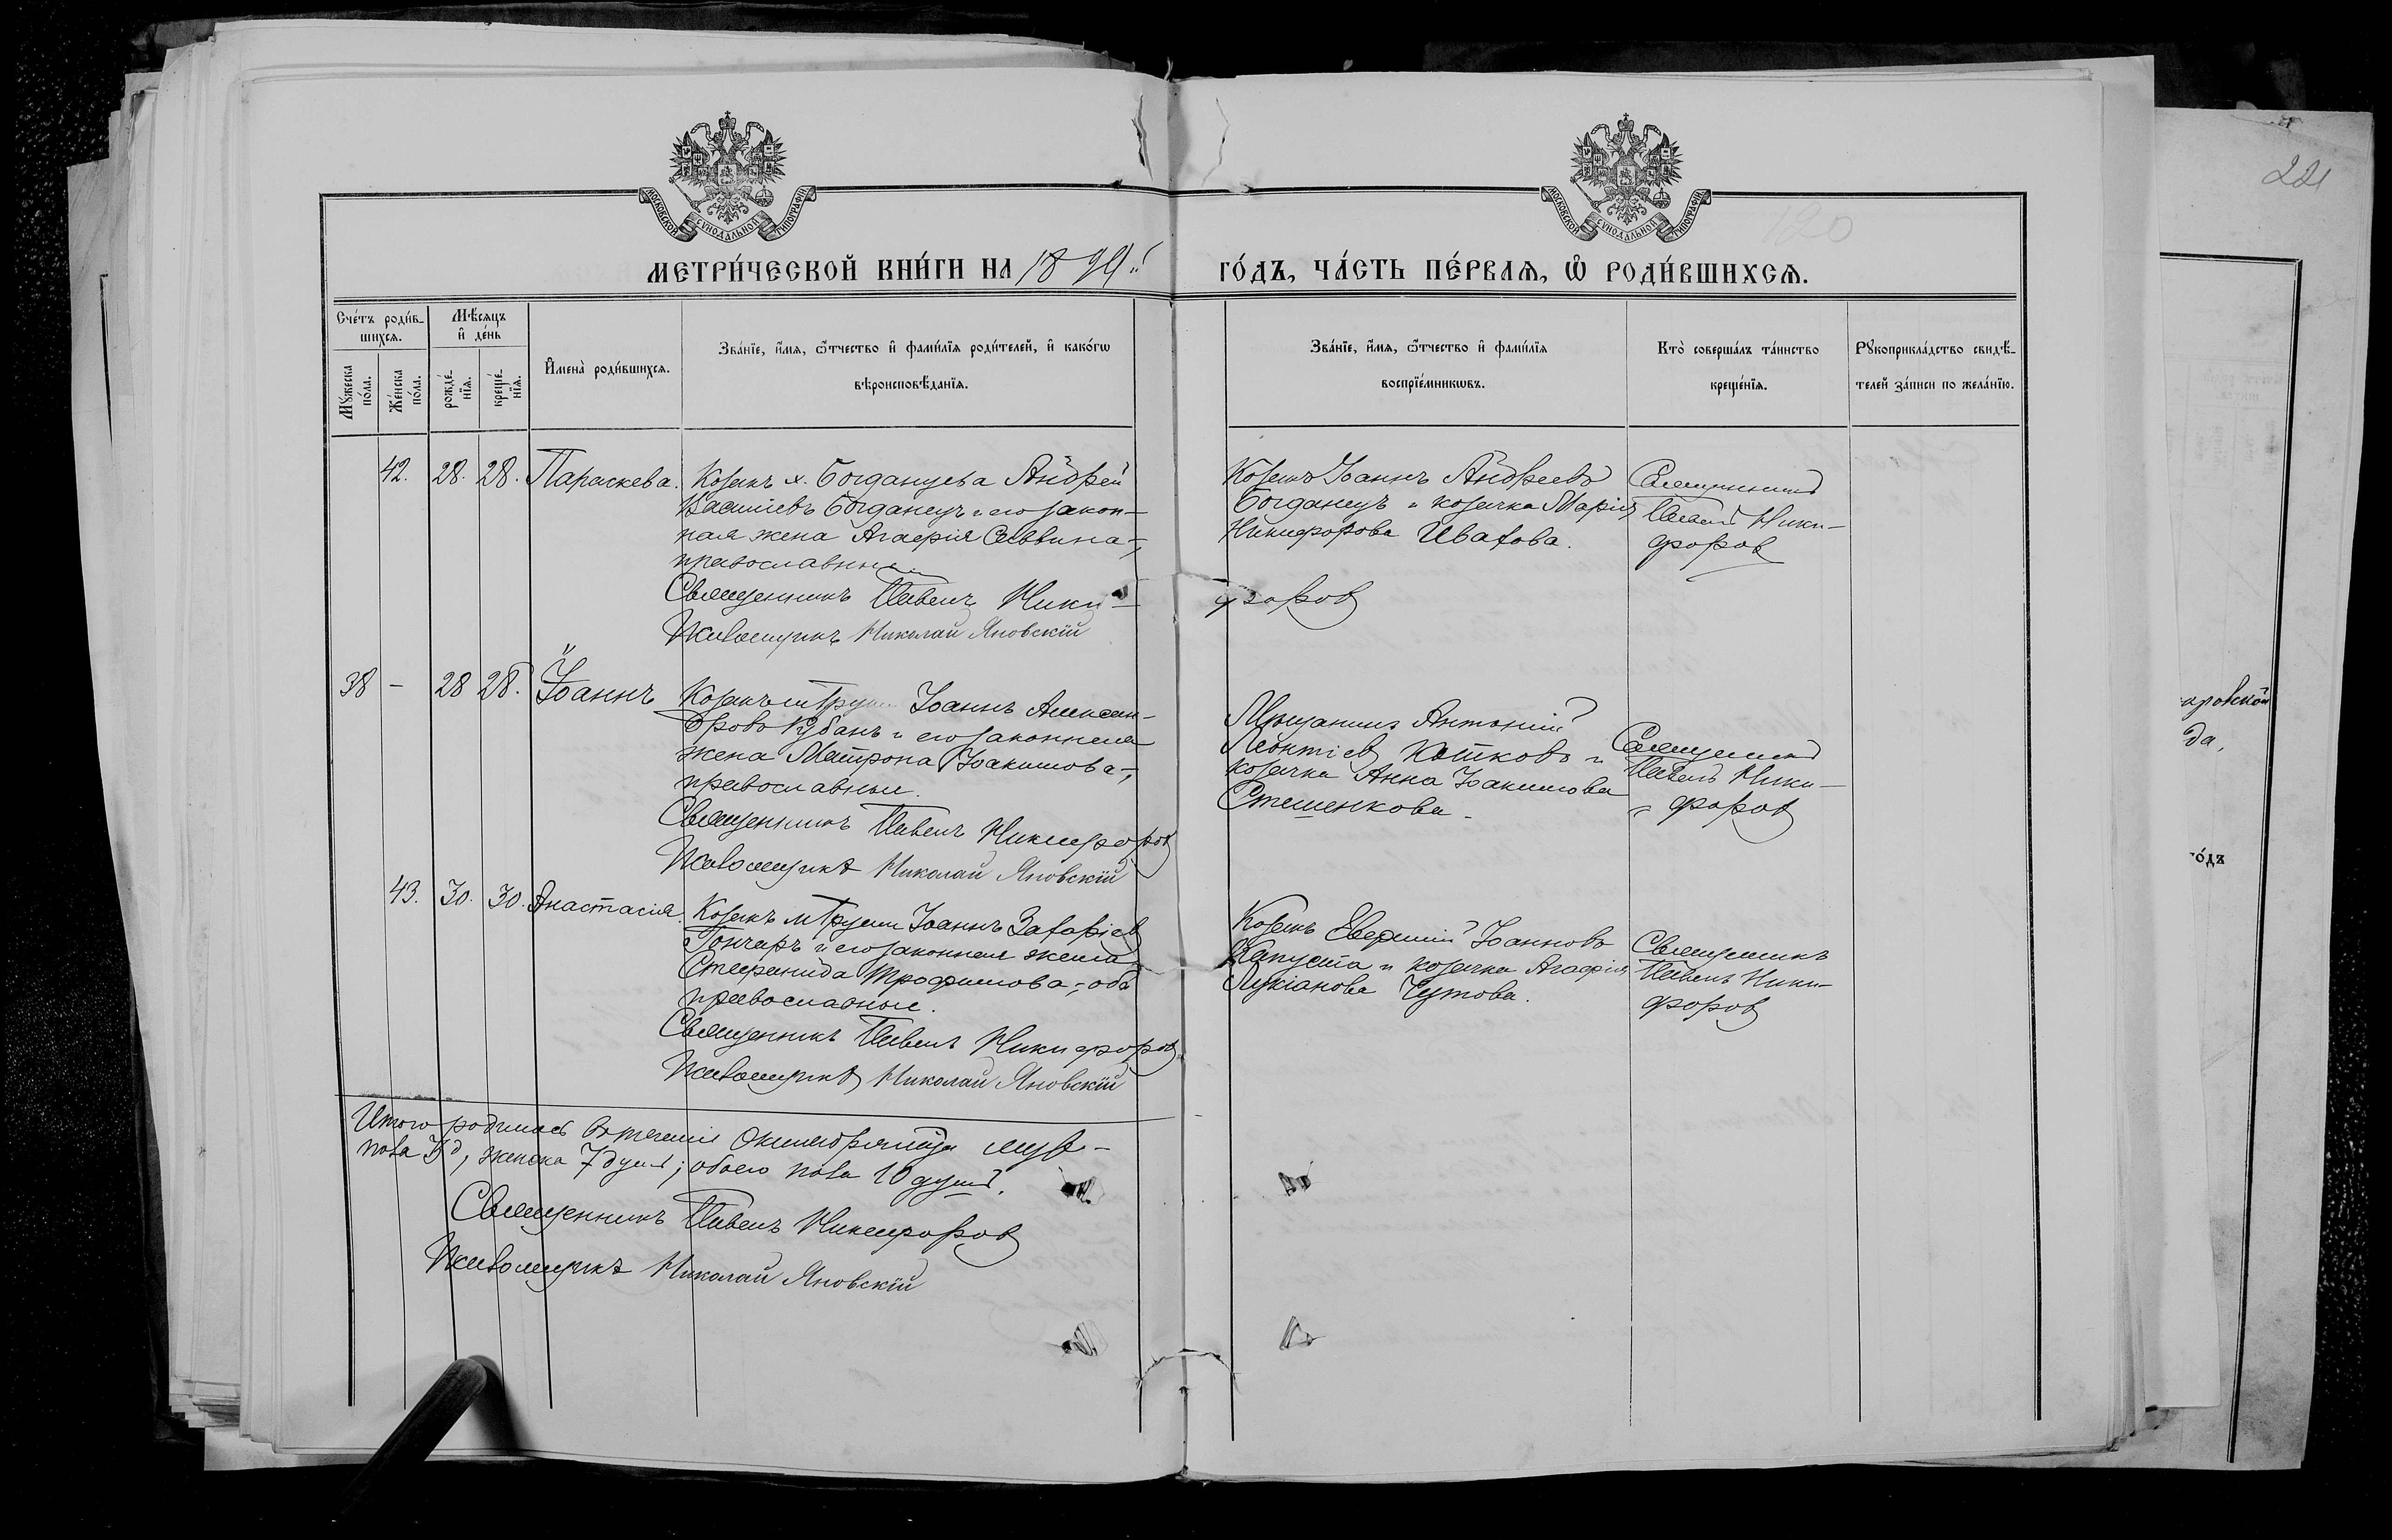 221
120
МОСКОВСКОЙ СѴНОДАЛЬНОЙ ТИПОГРАФІИ
МОСКОВСКОЙ СѴНОДАЛЬНОЙ ТИПОГРАФІИ
МЕТРИ́ЧЕСКОЙ КНИ́ГИ НА 1899й
ГО́ДЪ, ЧА́СТЬ ПЕ́РВАѦ, Ѿ РОДИ́ВШИХСѦ.
Сче́тъ роди́в-
шихсѧ.
Мѣ́сяцъ
и҆ де́нь
Мꙋ́жеска
по́ла.
Же́нска
по́ла.
рожде́-
нїѧ.
креще́-
нїѧ.
И҆мена̀ роди́вшихсѧ.
Зва́нїе, и҆́мѧ, ѻ҆́тчество и҆ фами́лїѧ роди́телей, и҆ како́гѡ
вѣроисповѣ́данїѧ.
Зва́нїе, и҆́мѧ, ѻ҆́тчество и҆ фами́лїѧ
воспрїе́мникѡвъ.
Кто̀ соверша́лъ та́инство
креще́нїѧ.
Рꙋкоприкла́дство свидѣ́-
телей за́писи по жела́нїю.
42. 28. 28. Параскева. Козакъ х. Богданцева Андрей
Васильевъ Богданецъ и его закон-
ная жена Агафія Саввина-,
православные
Священникъ Павелъ Ники-
форов
Псаломщикъ Николай Яновскій
Козакъ Іоаннъ Андреевъ
Богданецъ и козачка Марія
Никифорова Ивахова.
Священникъ
Павелъ Ники-
форов
38 - 28 28. Іоаннъ Козакъ м Груни Іоаннъ Алексан-
дровъ Кубанъ и его законная
жена Матрона Іоакимова-,
православные.
Священникъ Павелъ Никифоров
Псаломщикъ Николай Яновскій
Мѣщанинъ Антоній
Леонтіев Котковъ и
козачка Анна Іоакимова
Стешенкова-
Священникъ
Павелъ Ники-
форов
43. 30. 30. Анастасія Козакъ м Груни Іоаннъ Захаріев
Гончаръ и его законная жена
Стефанида Трофимова-, оба
православные.
Священникъ Павелъ Никифоров
Псаломщикъ Николай Яновскій
Козакъ Евфимій Іоанновъ
Капуста и козачка Агафія
Лукіанова Чутова.
Священникъ
Павелъ Ники-
форов
Итого родилось въ теченіи Октября м-ца муж-
пола 3 д, женска 7 душъ; обоего пола 10 душъ.
Священникъ Павелъ Никифоров
Псаломщикъ Николай Яновскій
аровской
да,
го́дъ